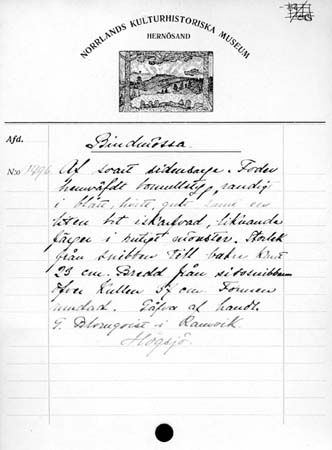 NORRLANDS KULTURHISTORISKA MUSEUM
HERNÖSAND
Afd.
Bindmössa.
N:o 1496.
Af svart sidensarge. Foder
hemväfdt bomullstyg, randig
i blått, hvitt, gult samt en
liten bit iskarfvad, liknande
färger i rutigt mönster. Storlek
från snibben till bakre kant
23 cm. Bredd från sidosnibbarna
öfver kullen 34 cm. Formen
rundad. Gåfva af handl.
G. Blomqvist i Ramvik.
Högsjö.